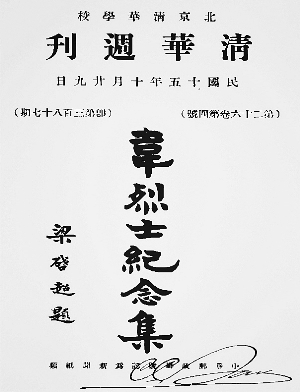 北京清華學校
清華週刊
民國十五年十月廿九日
（第二十六卷第四號）（總第三百八十七期）
韋烈士紀念集
梁啓超題
認爲新聞紙類